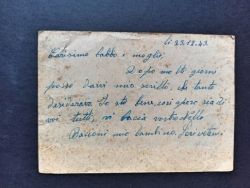 li 23.12.43
Carissimo babbo e moglie,
Dopo molti giorni
posso darvi mio scritto, che tanto
desideravo. Io sto bene, così spero sia di
voi tutti, vi bacia vostro
Bacioni mia bambina. Scrivetemi